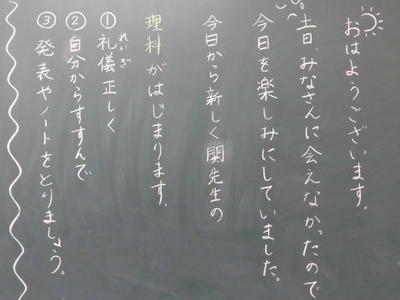 おはようございます。
土日、みなさんに会えなかったので
今日を楽しみにしていました。
今日から新しく関先生の
理科がはじまります。
①礼儀正しく
れいぎ
②自分からすすんで
③発表やノートをとりましょう。